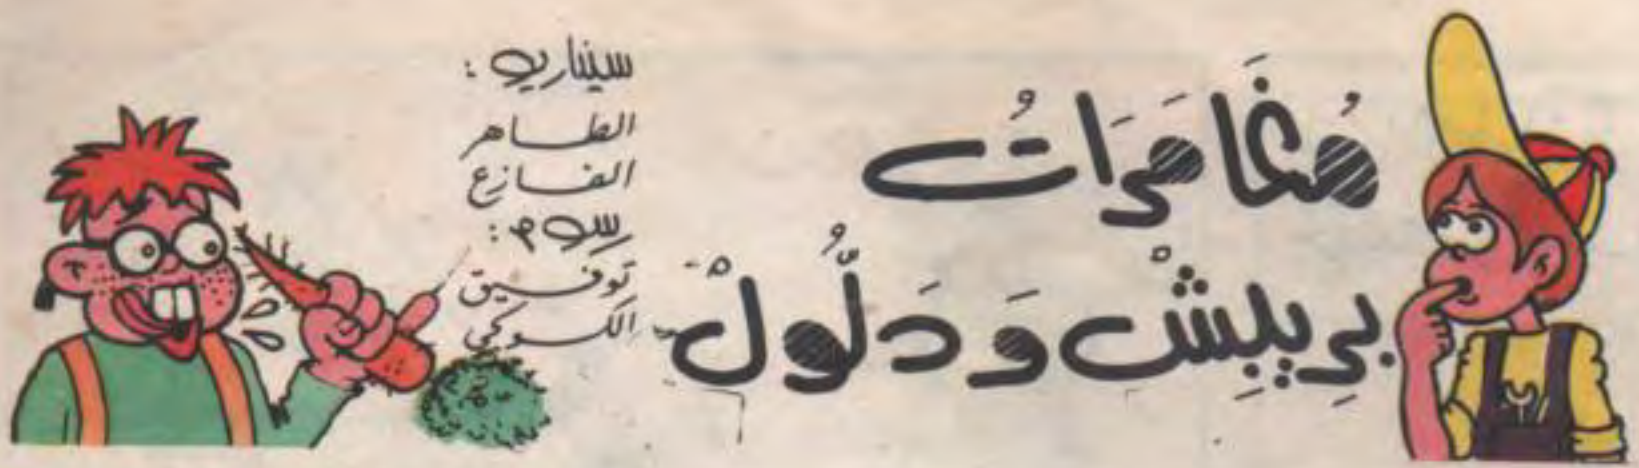 مُغَامَرَاتُ
بِرِيبِشْ وَدَلُّولْ
سيناريو :
الطاهر
الفازع
رسوم :
توفيق
الكوكي